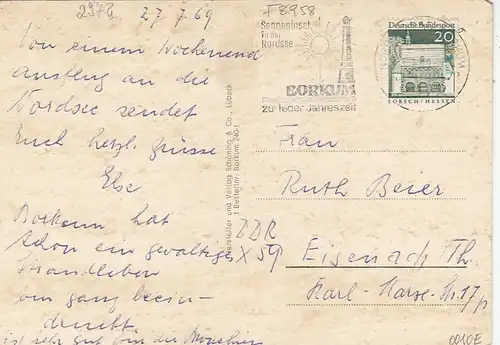 2978
27. 7. 69
F8958
Von einem Wochenend
ausflug an die
Nordsee sendet
Euch herzl. Grüsse
Else
Borkum hat
schon ein gewaltiges
Strandleben
bin ganz beein-
druckt.
ist sehr gut für die
Sonneninsel
in der
Nordsee
BORKUM
zu jeder Jahreszeit
Deutsche Bundespost
20
LORSCH/HESSEN
Hersteller und Verlag Schöning & Co., Lübeck
Frau
Ruth Beier
DDR
X 59
Eisenach Th.
Karl-Marx-Str. 17
0010E